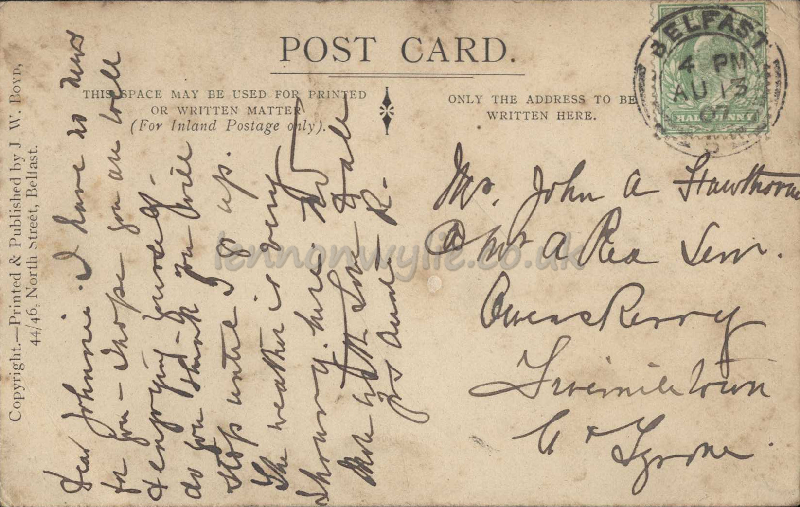 POST CARD.
THIS SPACE MAY BE USED FOR PRINTED
OR WRITTEN MATTER
(For Inland Postage only).
ONLY THE ADDRESS TO BE
WRITTEN HERE.
BELFAST
4 PM
AU 13
07
HALFPENNY
Copyright.—Printed & Published by J. W. Boyd,
44/46, North Street, Belfast.
Dear Johnnie. I have no news
for you - I hope you are well
& enjoying yourself -
do you think you will
stop until I go up.
The weather is very
showry here
with love
Aunt R.
Mr. John A Hawthorne
Rea Senr.
Owenskerry
Fivemiletown
Co Tyrone.
lennonwylie.co.uk